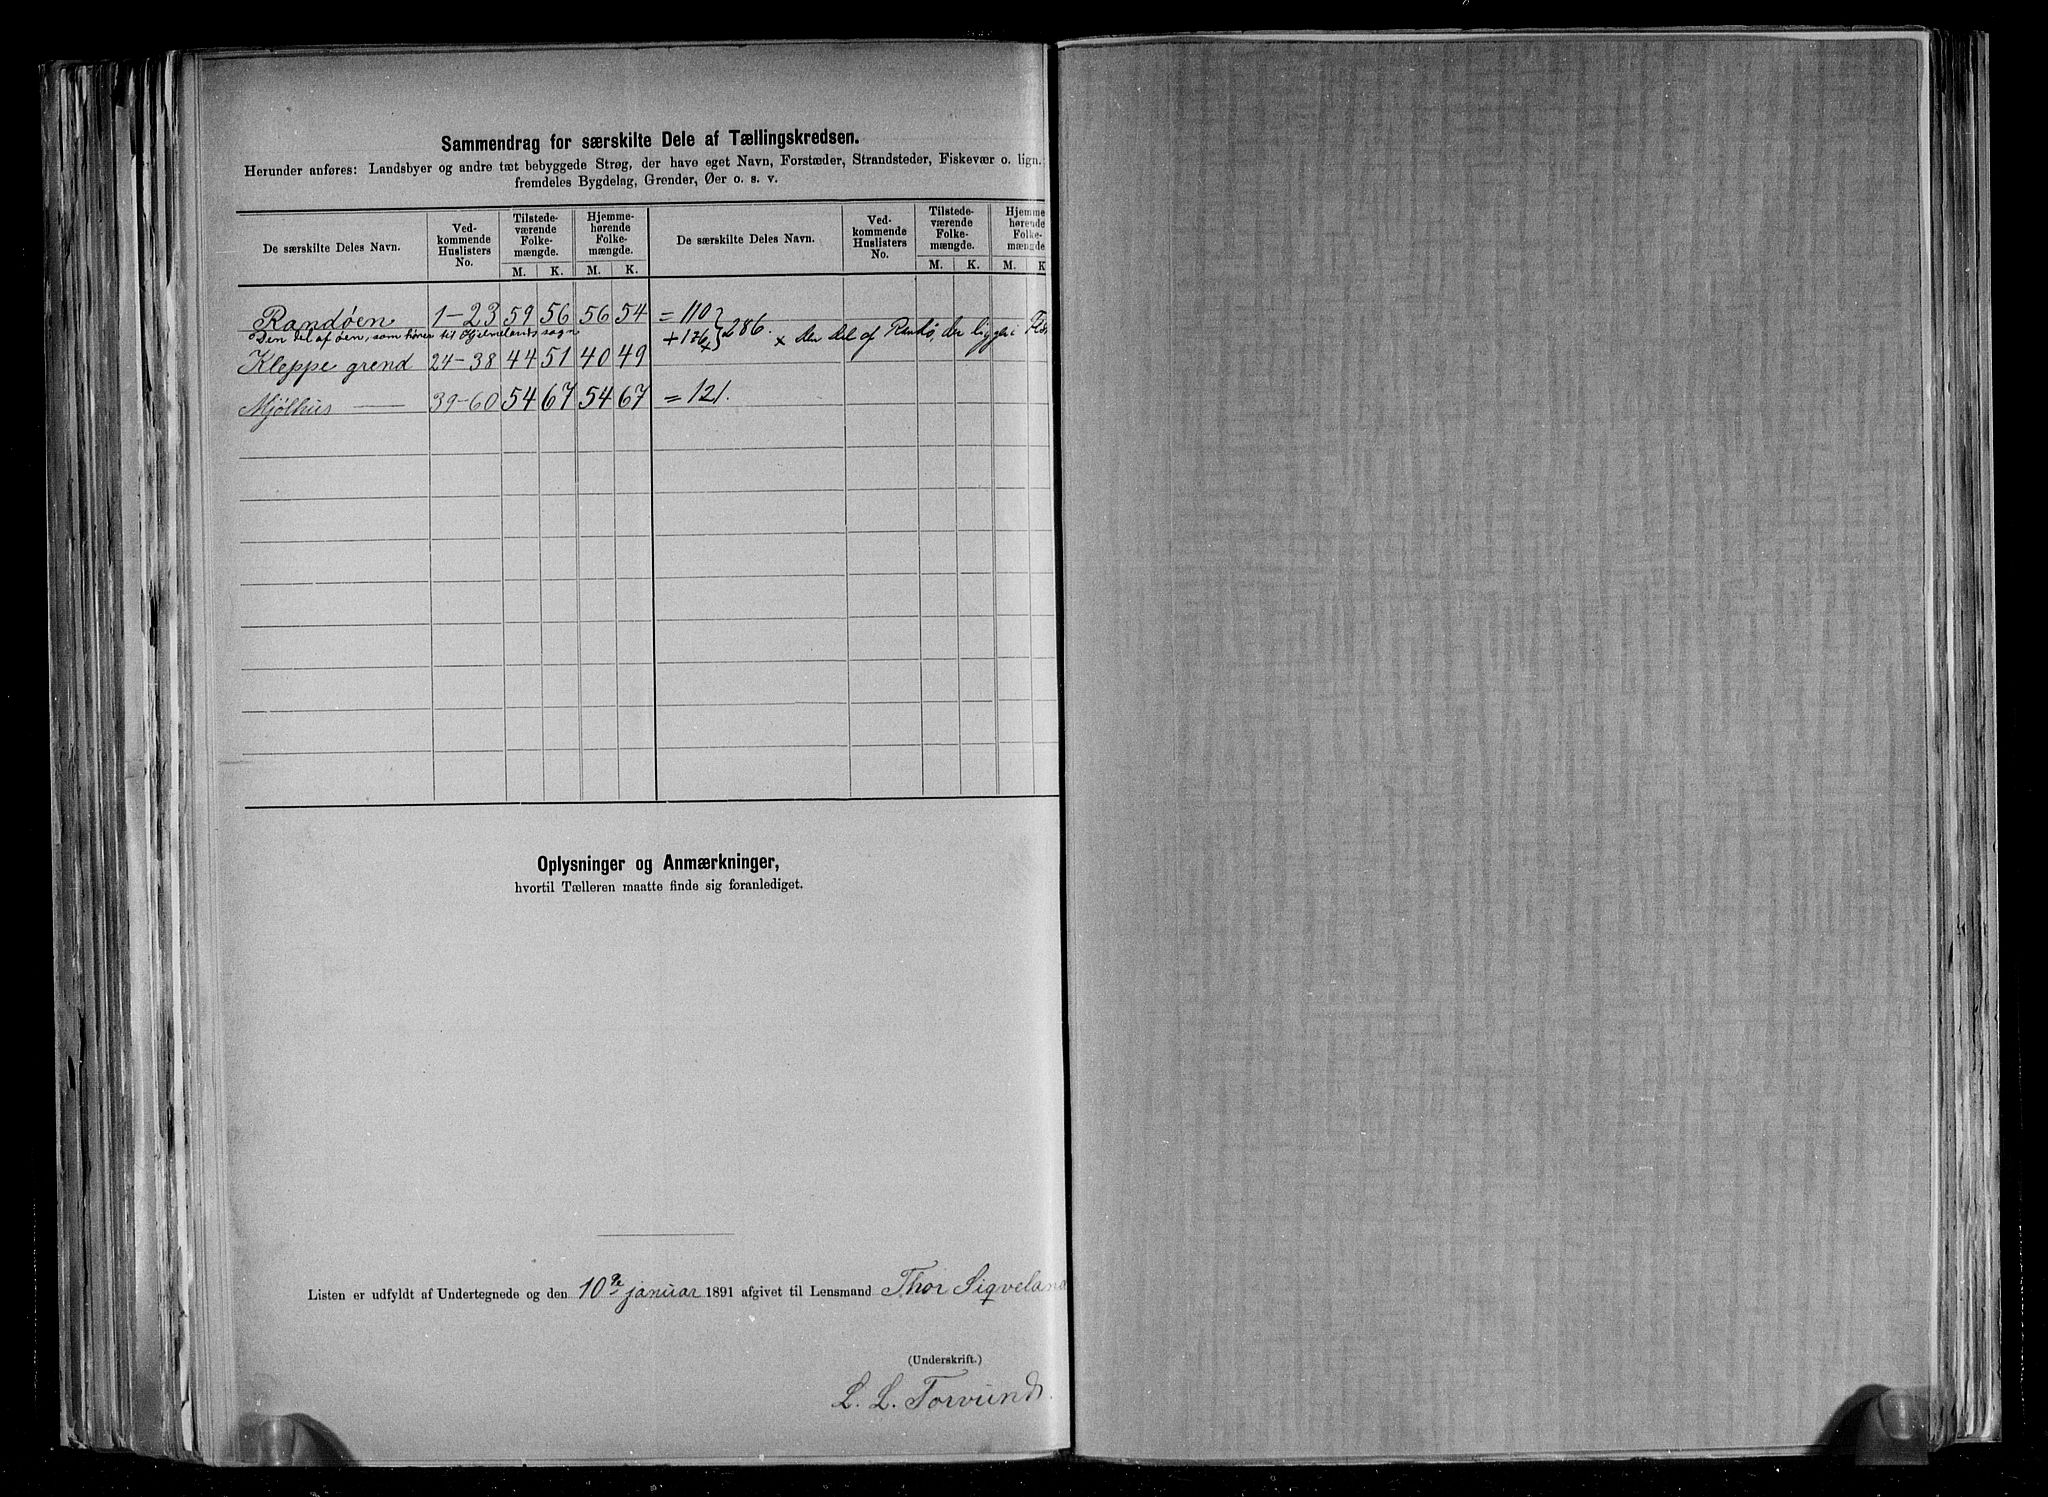 Sammendrag for særskilte Dele af Tællingskredsen.
Herunder anføres: Landsbyer og andre tæt bebyggede Strøg, der have eget Navn, Forstæder, Strandsteder, Fiskevær o. lign.
fremdeles Bygdelag, Grender, Øer o. s. v.
De særskilte Deles Navn. Ved-kommende Huslisters No. Tilstede-værende Folke-mængde. Hjemme-hørende Folke-mængde. De særskilte Deles Navn. Ved-kommende Huslisters No. Tilstede-værende Folke-mængde. Hjemme-hørende Folke-mængde
M. K. M. K. M. K. M. K
Randøen 1-23 59 56 56 54 = 110
Den del af øen, som hører til Hjelmelands sogn + 176x } 286. x den Del af Randø, der ligger i
Kleppe grend 24-38 44 51 40 49
Mjølhus — 39-60 54 67 54 67 = 121.
Oplysninger og Anmærkninger,
hvortil Tælleren maatte finde sig foranlediget.
Listen er udfyldt af Undertegnede og den 10de januar 1891 afgivet til Lensmand Thor Siqveland
(Underskrift.)
L. L. Torvund.